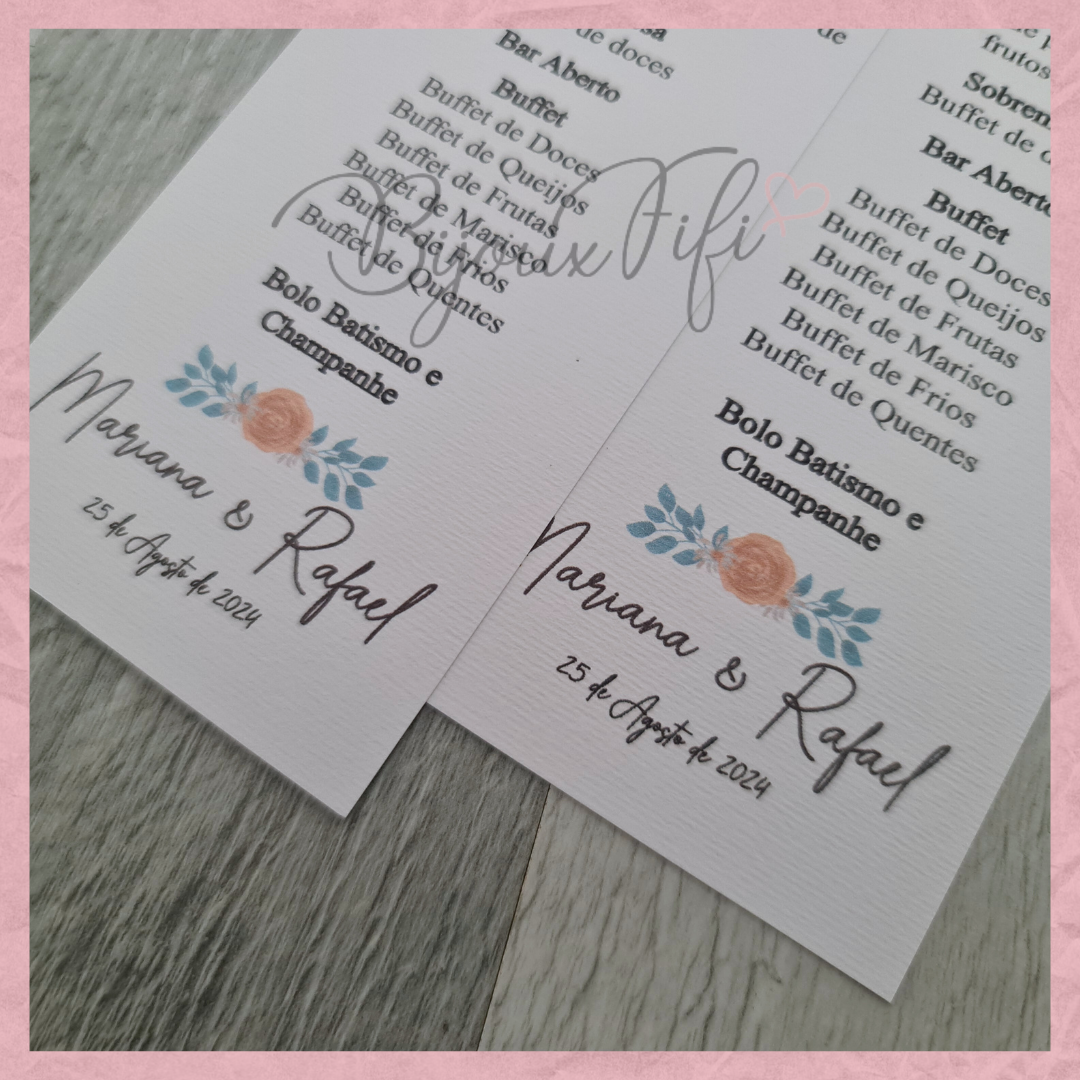 de doces
de
Bar Aberto
Buffet
Buffet de Doces
Buffet de Queijos
Buffet de Frutas
Buffet de Marisco
Buffet de Frios
Buffet de Quentes
Bolo Batismo e
Champanhe
Mariana & Rafael
25 de Agosto de 2024
Bijoux Fifi
frutos
Sobrem
Buffet de d
Bar Aberto
Buffet
Buffet de Doces
Buffet de Queijos
Buffet de Frutas
Buffet de Marisco
Buffet de Frios
Buffet de Quentes
Bolo Batismo e
Champanhe
Mariana & Rafael
25 de Agosto de 2024